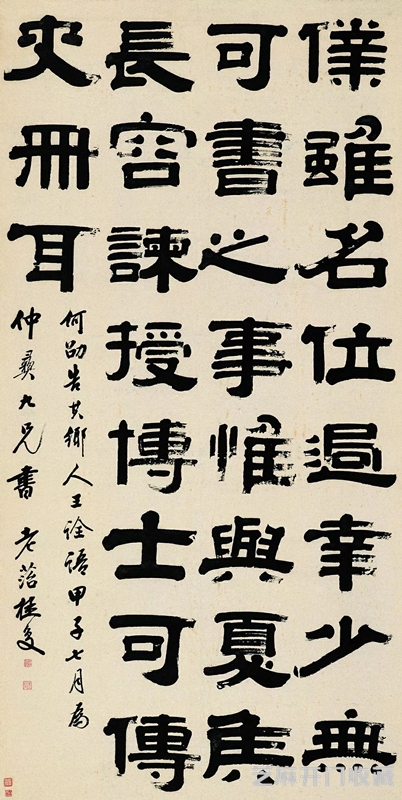 僕雖名位過幸少無
可書之事惟與夏侯
長容諫授博士可傳
史冊耳
何劭告其鄉人王詮語甲子七月為
仲彞九兄書 老菭桂馥